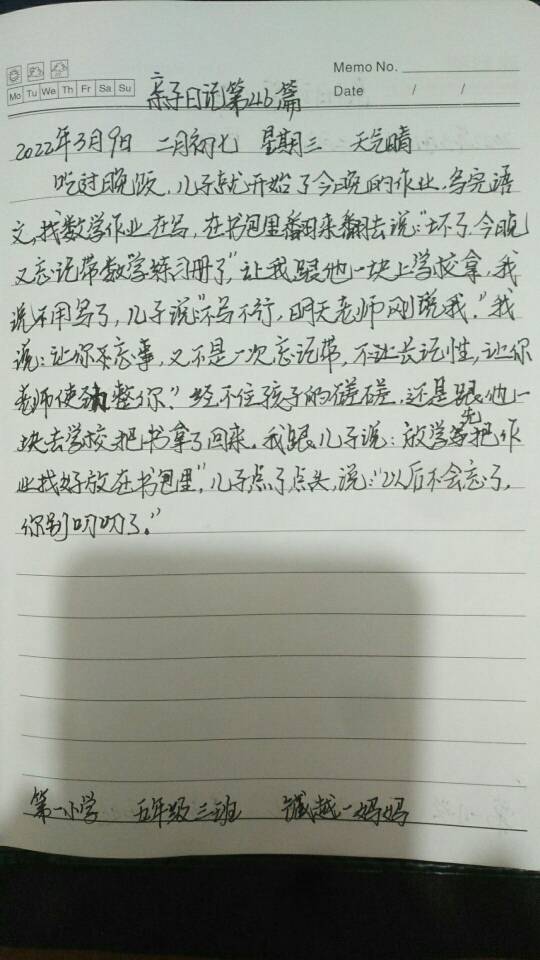 Memo No.
Mo Tu We Th Fr Sa Su
Date / /
亲子日记第46篇
2022年3月9日 二月初七 星期三 天气晴
吃过晚饭,儿子就开始了今晚的作业,写完语
文,找数学作业在写,在书包里翻来翻去说:“坏了,今晚
又忘记带数学练习册了”,让我跟他一块上学校拿,我
说不用写了,儿子说“不写不行,明天老师刚说我。”我
说:让你不忘事,又不是一次忘记带,不让长记性,让你
老师使劲整你?经不住孩子的磋磋,还是跟他一
块去学校把书拿了回来。我跟儿子说:放学先把作
业找好放在书包里”,儿子点了点头,说:“以后不会忘了,
你别叨叨了。”
第一小学 五年级三班 越一妈妈